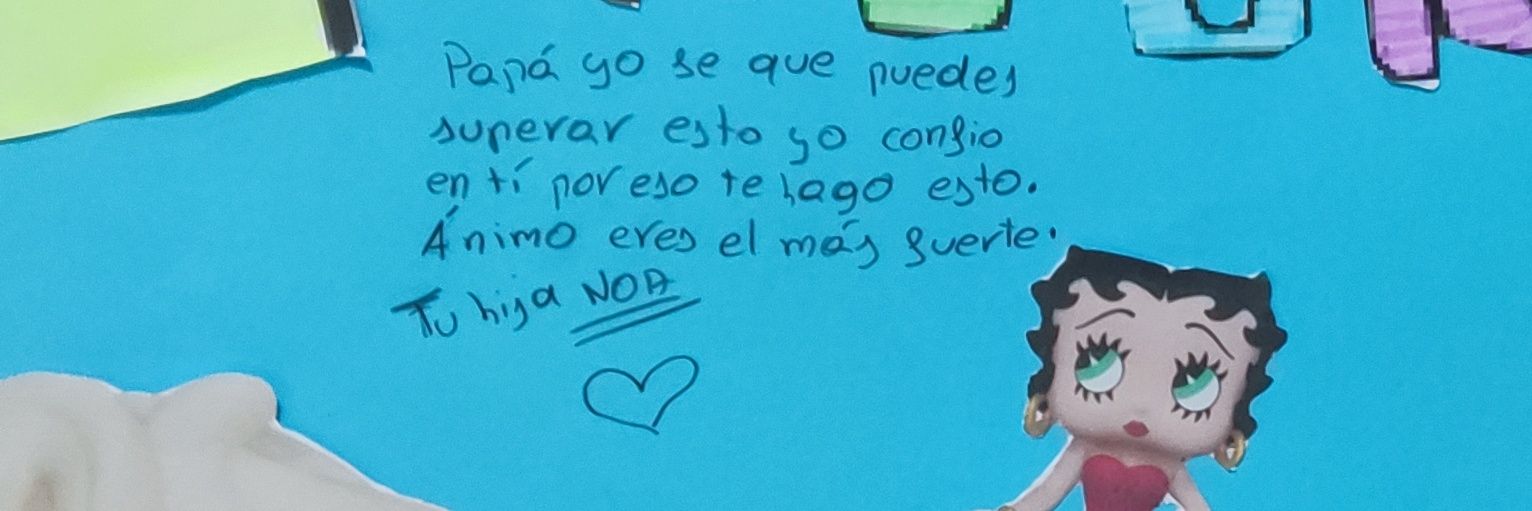 Papá yo se que puedes
superar esto yo confio
en tí por eso te hago esto.
Ánimo eres el más fuerte.
Tu hija NOA